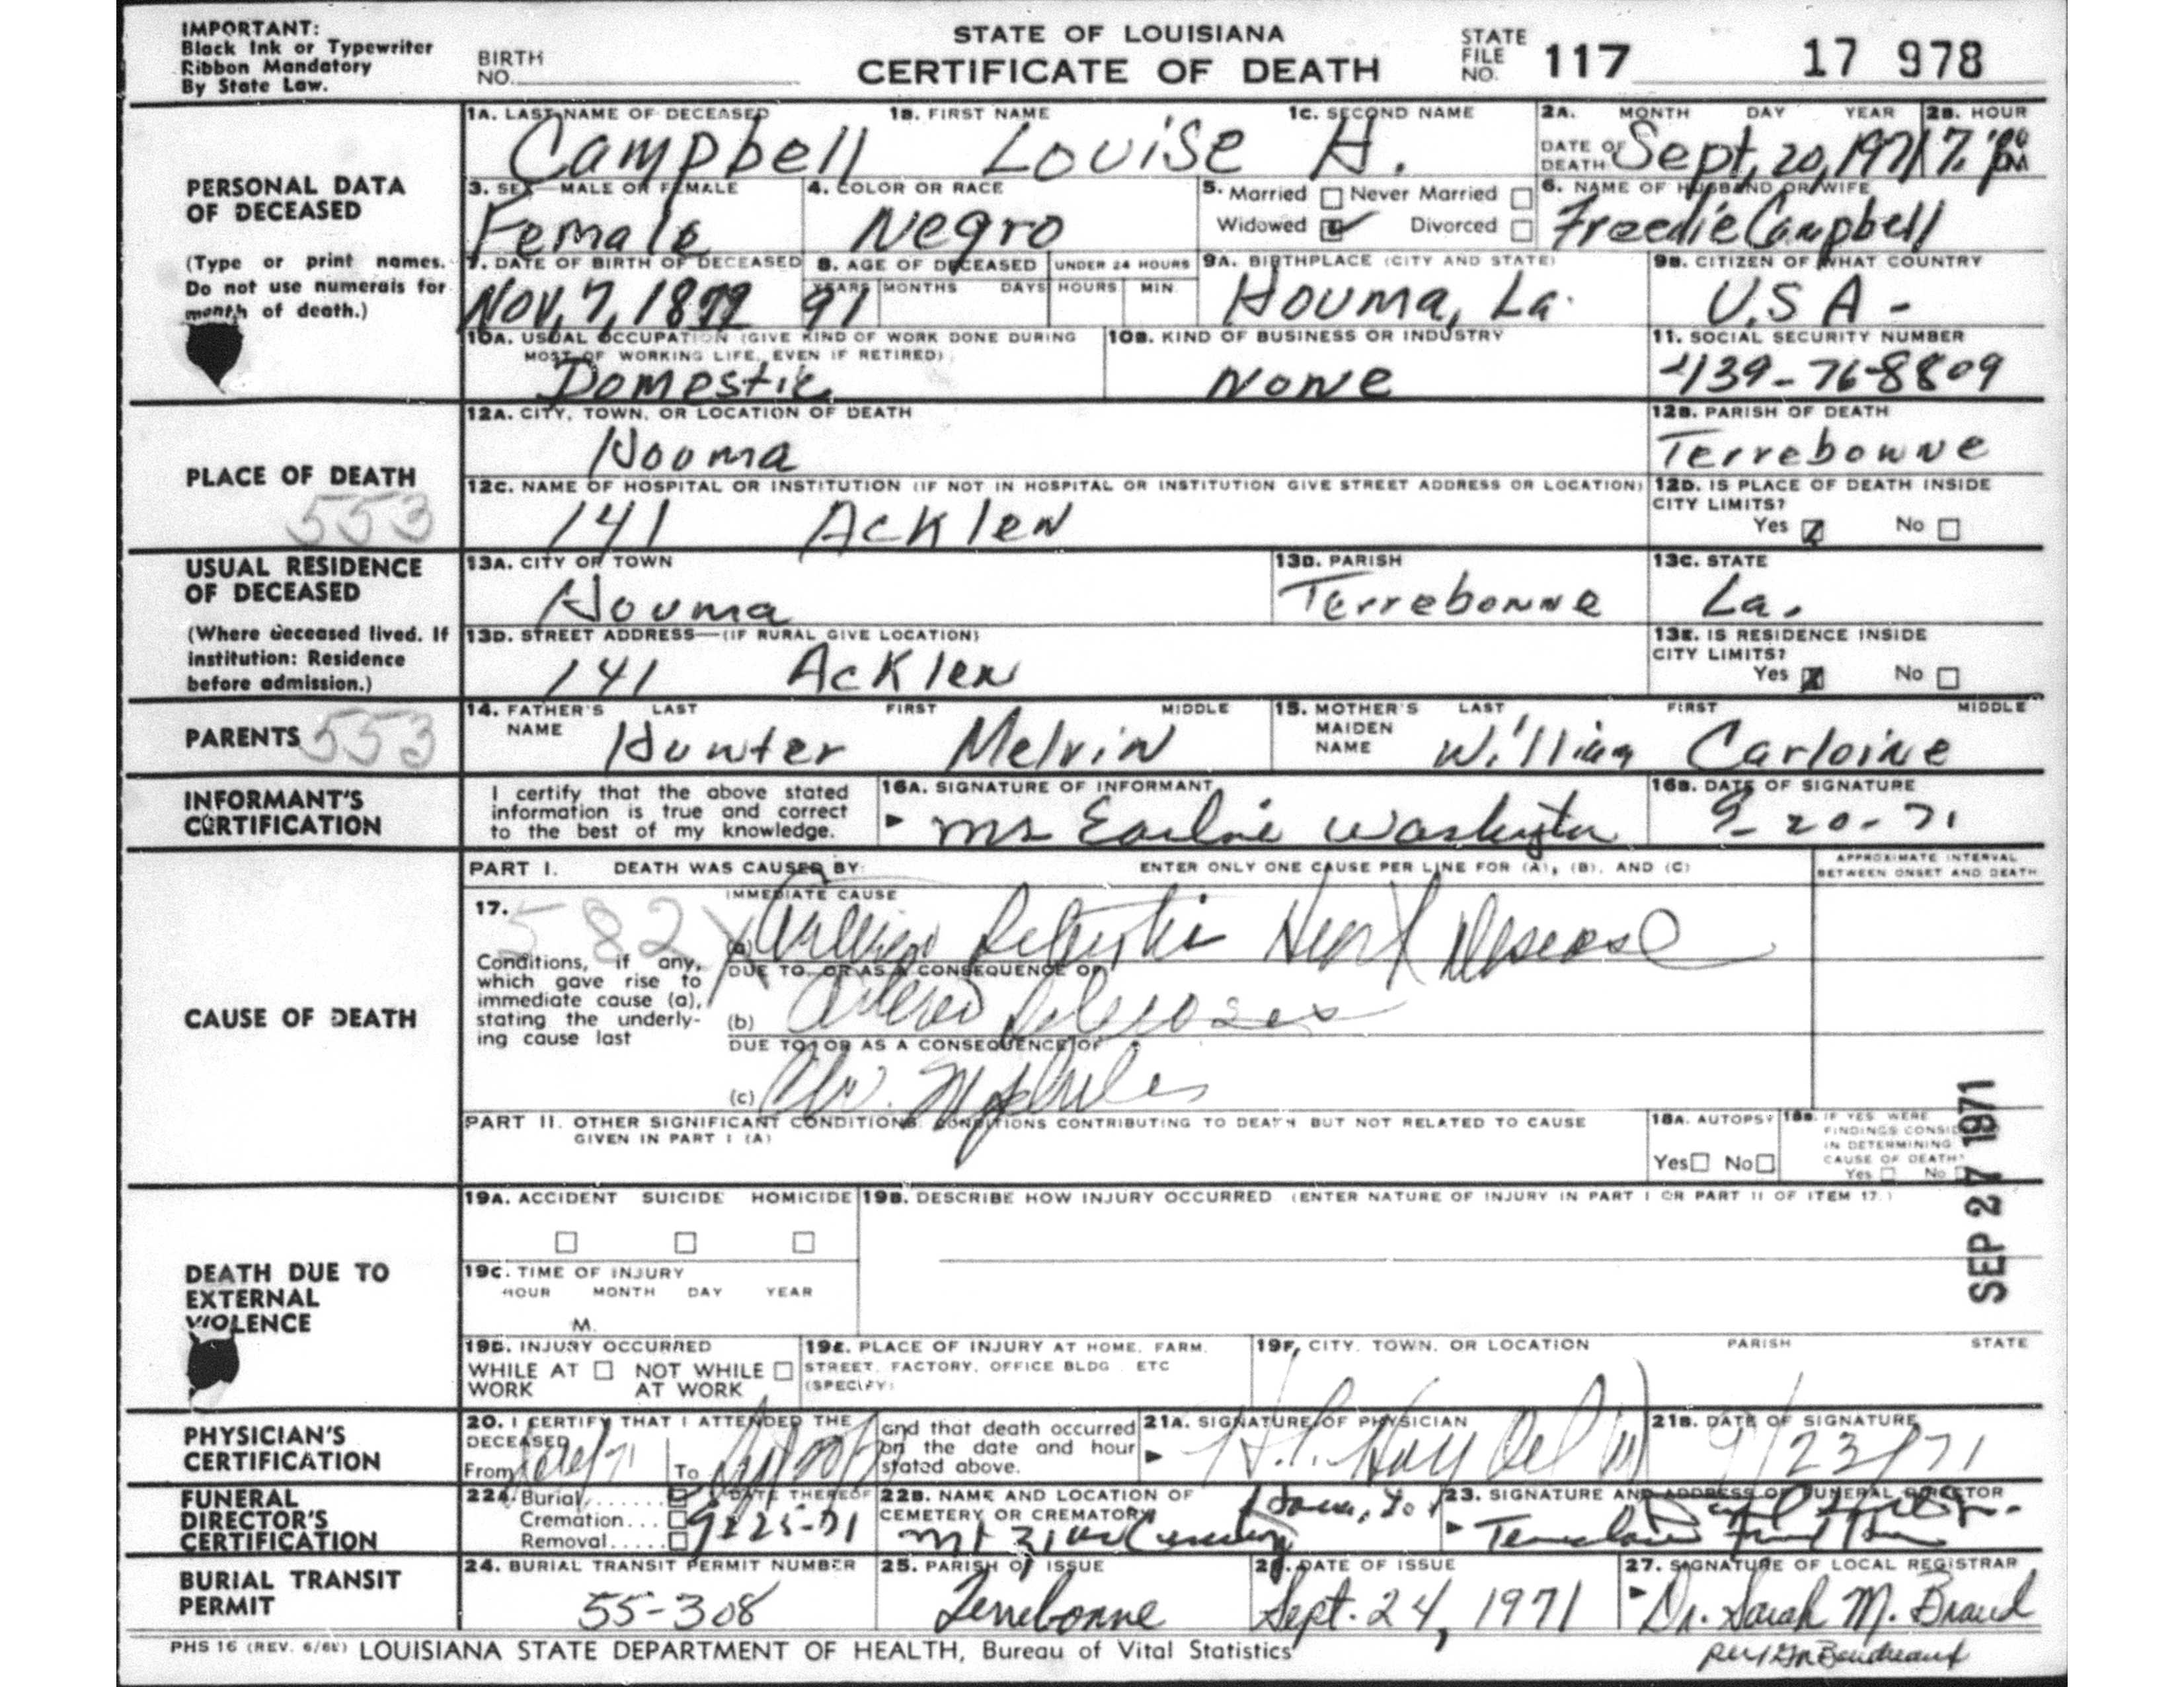 IMPORTANT:
Black Ink or Typewriter
Ribbon Mandatory
By State Law.
BIRTH
NO.
STATE OF LOUISIANA
CERTIFICATE OF DEATH
STATE
FILE
NO. 117 17 978
PERSONAL DATA
OF DECEASED
(Type or print names.
Do not use numerals for
month of death.)
1A. LAST NAME OF DECEASED 1B. FIRST NAME 1C. SECOND NAME
Campbell Louise H.
2A. MONTH DAY YEAR 2B. HOUR
DATE OF
DEATH Sept, 20, 1971 7:
3. SEX MALE OR FEMALE
Female
4. COLOR OR RACE
Negro
5. Married Never Married
Widowed Divorced
6. NAME OF HUSBAND OR WIFE
Freedie Campbell
7. DATE OF BIRTH OF DECEASED
Nov, 7, 18
8. AGE OF DECEASED UNDER 24 HOURS
YEARS MONTHS DAYS HOURS MIN.
91
9A. BIRTHPLACE (CITY AND STATE)
Houma, La.
9B. CITIZEN OF WHAT COUNTRY
U.S A -
10A. USUAL OCCUPATION (GIVE KIND OF WORK DONE DURING
MOST OF WORKING LIFE, EVEN IF RETIRED)
Domestic
10B. KIND OF BUSINESS OR INDUSTRY
NoNe
11. SOCIAL SECURITY NUMBER
439-76-8809
PLACE OF DEATH
553
12A. CITY, TOWN, OR LOCATION OF DEATH
Houma
12B. PARISH OF DEATH
Terrebonne
12C. NAME OF HOSPITAL OR INSTITUTION (IF NOT IN HOSPITAL OR INSTITUTION GIVE STREET ADDRESS OR LOCATION)
141 Acklen
12D. IS PLACE OF DEATH INSIDE
CITY LIMITS?
Yes No
USUAL RESIDENCE
OF DECEASED
(Where deceased lived. If
institution: Residence
before admission.)
13A. CITY OR TOWN
Houma
13B. PARISH
Terrebonne
13C. STATE
La.
13D. STREET ADDRESS—(IF RURAL GIVE LOCATION)
141 Acklen
13E. IS RESIDENCE INSIDE
CITY LIMITS?
Yes No
PARENTS 553
14. FATHER'S LAST FIRST MIDDLE
NAME
Hunter Melvin
15. MOTHER'S LAST FIRST MIDDLE
MAIDEN
NAME
William Carloine
INFORMANT'S
CERTIFICATION
I certify that the above stated
information is true and correct
to the best of my knowledge.
16A. SIGNATURE OF INFORMANT
Earline Washington
16B. DATE OF SIGNATURE
9-20-71
CAUSE OF DEATH
PART I. DEATH WAS CAUSED BY: ENTER ONLY ONE CAUSE PER LINE FOR (A), (B), AND (C)
APPROXIMATE INTERVAL
BETWEEN ONSET AND DEATH
17.
582
Conditions, if any,
which gave rise to
immediate cause (a),
stating the underly-
ing cause last
IMMEDIATE CAUSE
(a) Heart Disease
DUE TO, OR AS A CONSEQUENCE OF
(b)
DUE TO, OR AS A CONSEQUENCE OF
(c)
PART II. OTHER SIGNIFICANT CONDITIONS: CONDITIONS CONTRIBUTING TO DEATH BUT NOT RELATED TO CAUSE
GIVEN IN PART I (A)
18A. AUTOPSY
Yes No
18B. IF YES WERE
FINDINGS CONSID
IN DETERMINING
CAUSE OF DEATH?
Yes No
SEP 27 1971
DEATH DUE TO
EXTERNAL
VIOLENCE
19A. ACCIDENT SUICIDE HOMICIDE
19B. DESCRIBE HOW INJURY OCCURRED (ENTER NATURE OF INJURY IN PART I OR PART II OF ITEM 17.)
19C. TIME OF INJURY
HOUR MONTH DAY YEAR
M.
19D. INJURY OCCURRED
WHILE AT NOT WHILE
WORK AT WORK
19E. PLACE OF INJURY AT HOME, FARM,
STREET, FACTORY, OFFICE BLDG. ETC
(SPECIFY)
19F. CITY, TOWN, OR LOCATION PARISH STATE
PHYSICIAN'S
CERTIFICATION
20. I CERTIFY THAT I ATTENDED THE
DECEASED
From To
and that death occurred
on the date and hour
stated above.
21A. SIGNATURE OF PHYSICIAN
21B. DATE OF SIGNATURE
9/23/71
FUNERAL
DIRECTOR'S
CERTIFICATION
22A. Burial
Cremation
Removal
DATE THEREOF
9-25-71
22B. NAME AND LOCATION OF
CEMETERY OR CREMATORY
23. SIGNATURE AND ADDRESS OF FUNERAL DIRECTOR
BURIAL TRANSIT
PERMIT
24. BURIAL TRANSIT PERMIT NUMBER
55-308
25. PARISH OF ISSUE
Terrebonne
26. DATE OF ISSUE
Sept. 24, 1971
27. SIGNATURE OF LOCAL REGISTRAR
Dr. Sarah M. Braud
PHS 16 (REV. 6/68) LOUISIANA STATE DEPARTMENT OF HEALTH, Bureau of Vital Statistics